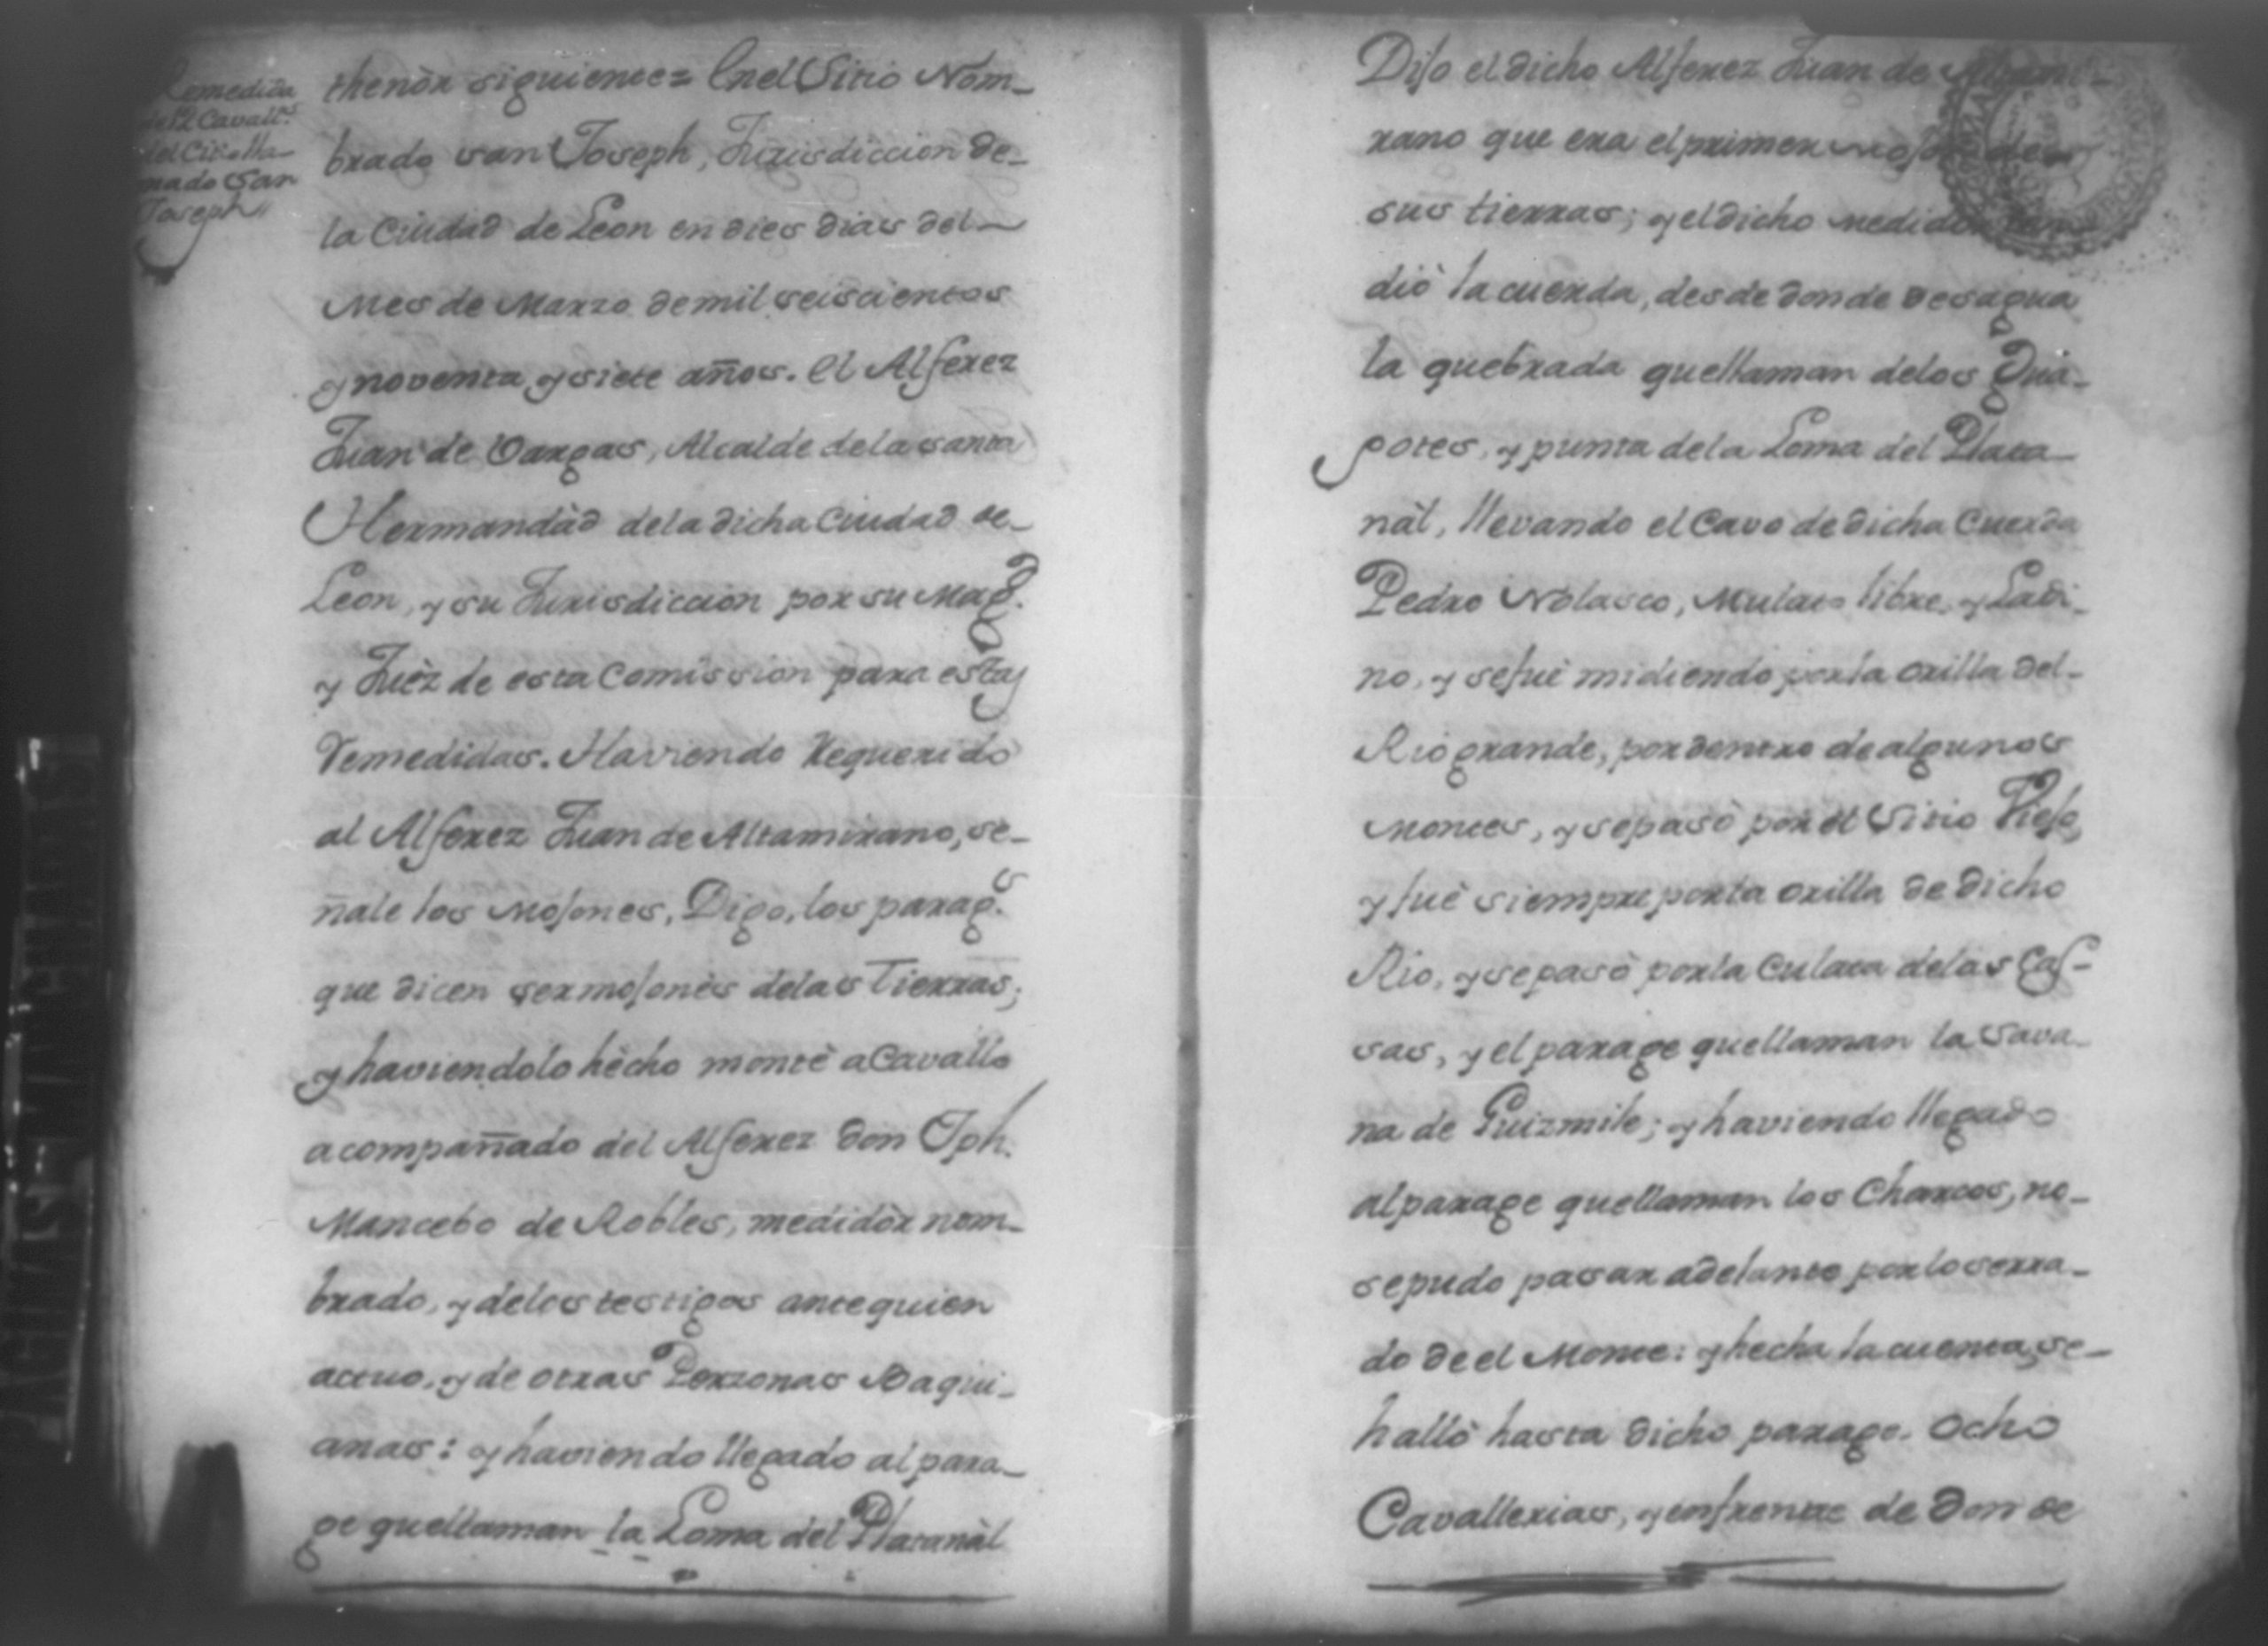 Remedida
de 12 Cavall.s
del Citio lla-
mado San
Joseph
thenòr siguiente= En el Sitio Nom-
brado san Joseph, Jurisdiccion de-
la Ciudad de Leon en dies dias del
Mes de Marzo de mil seiscientos
y noventa, y siete años. El Alferez
Juan de Vargas, Alcalde de la santa
Hermandàd de la dicha Ciudad de-
Leon, y su Jurisdiccion por su Mag.d
y Juèz de esta Comission para estas
Remedidas. Haviendo Requerido
al Alferez Juan de Altamirano, se-
ñale los Mojones, Digo, los parag.s
que dicen ser mojonès de las Tierras;
y haviendolo hècho montè a Cavallo
acompañado del Alferez Don Jph.
Mancebo de Robles, medidòr nom-
brado, y de los testigos ante quien
actuo, y de otras Perzonas Baqui-
anas: y haviendo llegado al para-
ge que llaman la Loma del Platanàl
Dijo el dicho Alferez Juan de Altami-
rano que era el primer mojon de
sus tierras; y el dicho medidor
diò la cuerda, desde donde desagua
la quebrada que llaman de los Gua-
potes, y punta de la Loma del Plata-
nàl, llevando el Cavo de dicha Cuerda
Pedro Nolasco, Mulato libre, y Ladi-
no, y se fuè midiendo por la orilla del-
Rio grande, por dentro de algunos
Montes, y se pasò por el Sitio Viejo,
y fuè siempre por la orilla de dicho
Rio, y se pasò por la Culata de las Cas-
sas, y el parage que llaman la Sava-
na de Guizmile; y haviendo llegado
al parage que llaman los Charcos, no-
se pudo pasar adelante por lo serra-
do de el Monte: y hecha la cuenta, se-
hallò hasta dicho parage. Ocho
Cavallerias, y enfrente de donde